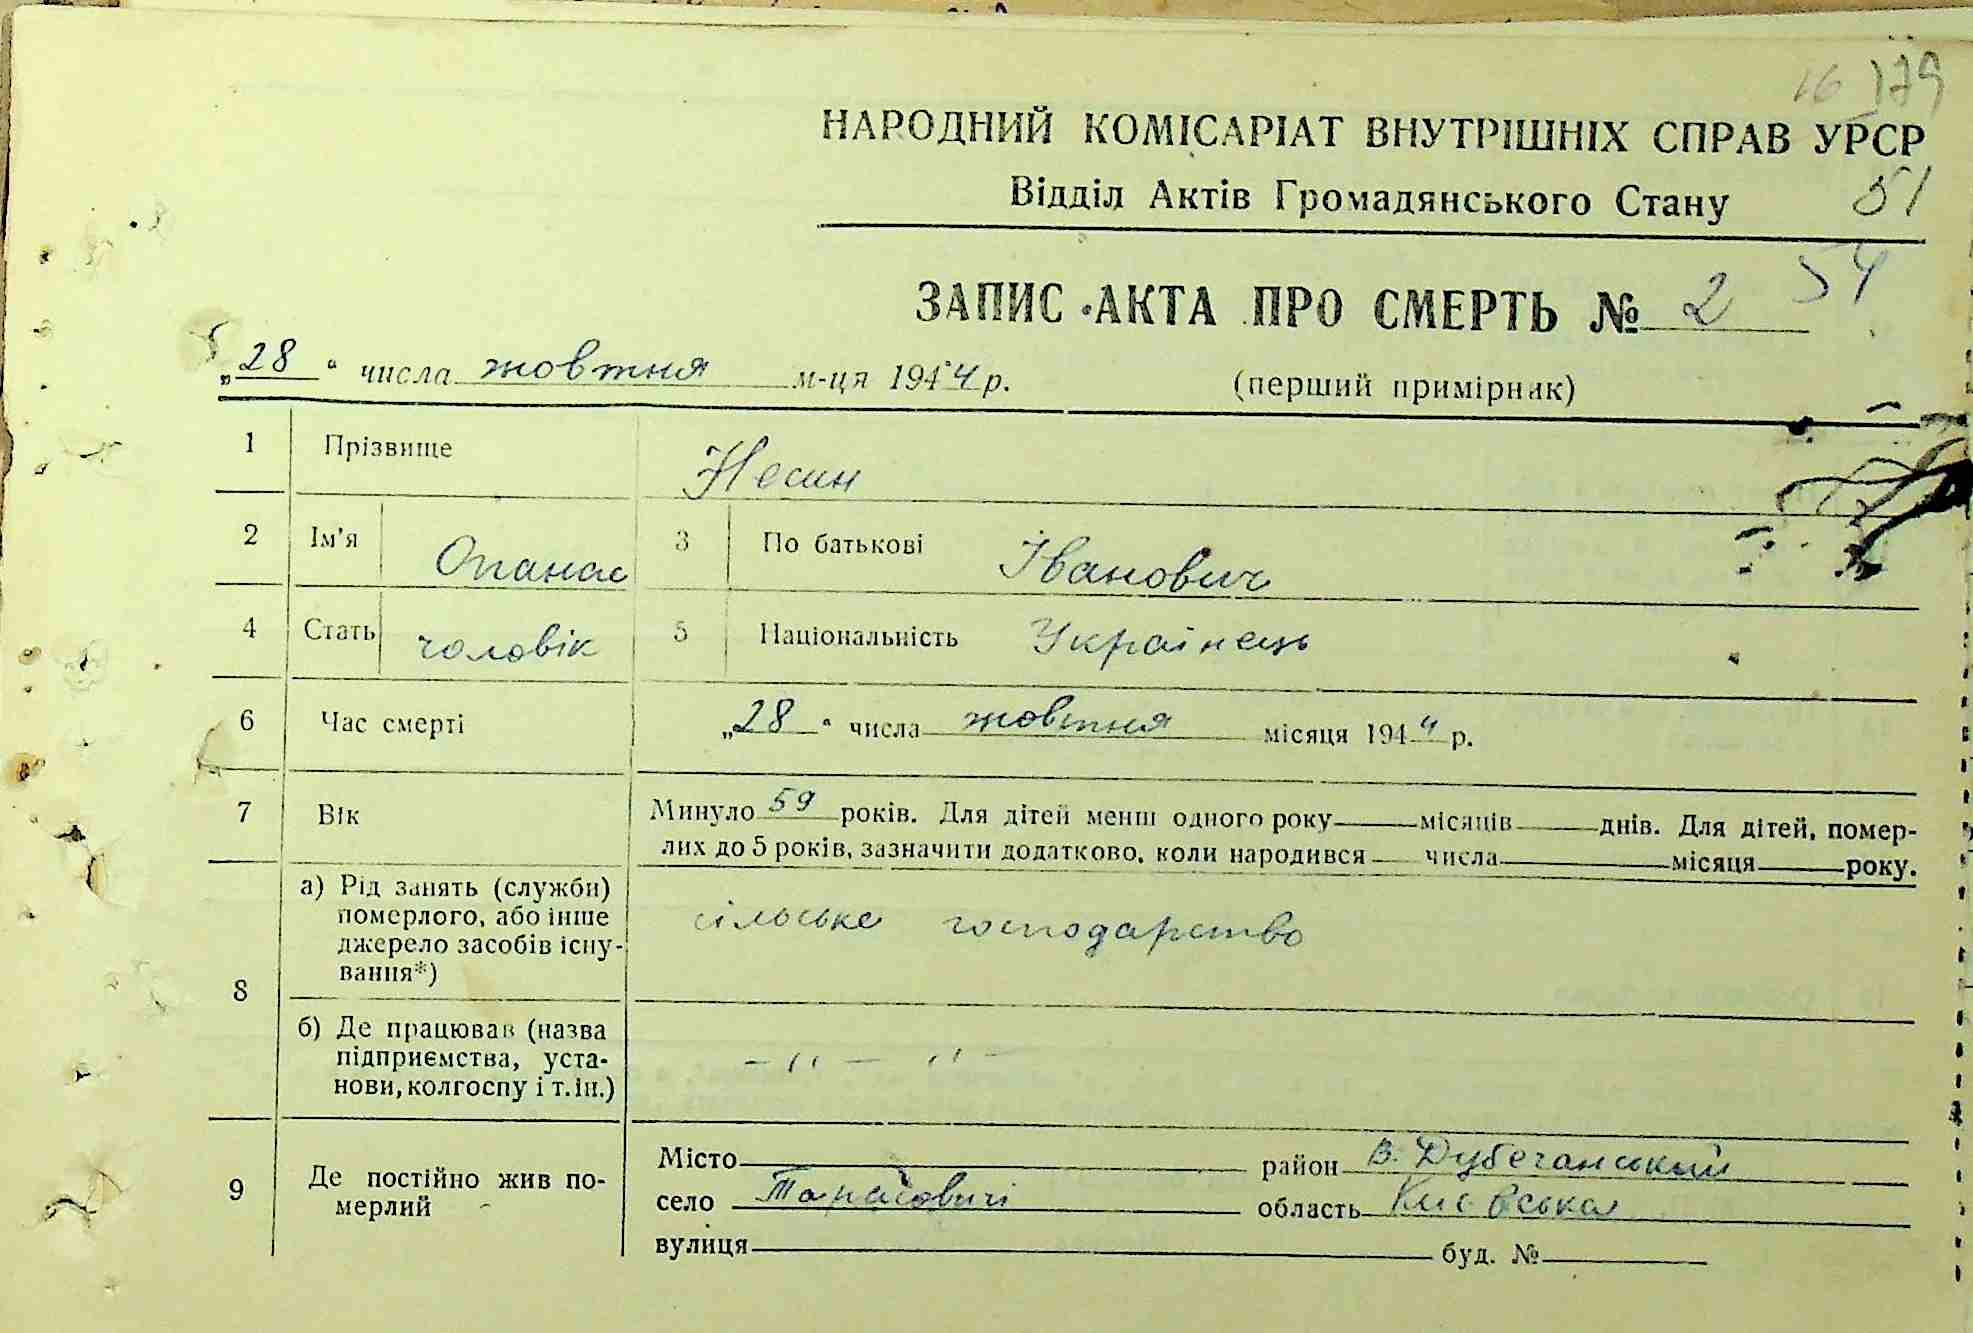 16 179
НАРОДНИЙ КОМІСАРІАТ ВНУТРІШНІХ СПРАВ УРСР
Відділ Актів Громадянського Стану 51
54
ЗАПИС АКТА ПРО СМЕРТЬ № 2
„28“ числа жовтня м-ця 1944 р. (перший примірник)
1 Прізвище Несин
2 Ім'я Опанас 3 По батькові Іванович
4 Стать чоловік 5 Національність Українець
6 Час смерті „28“ числа жовтня місяця 1944 р.
7 Вік Минуло 59 років. Для дітей менш одного року — місяців — днів. Для дітей, помер-
лих до 5 років, зазначити додатково, коли народився — числа — місяця — року.
8 а) Рід занять (служби) сільське господарство
померлого, або інше
джерело засобів існу-
вання*)
б) Де працював (назва -„- „-
підприємства, уста-
нови, колгоспу і т. ін.)
9 Де постійно жив по-
мерлий
Місто район В. Дубечанський
село Тарасовичі область Київська
вулиця буд. №